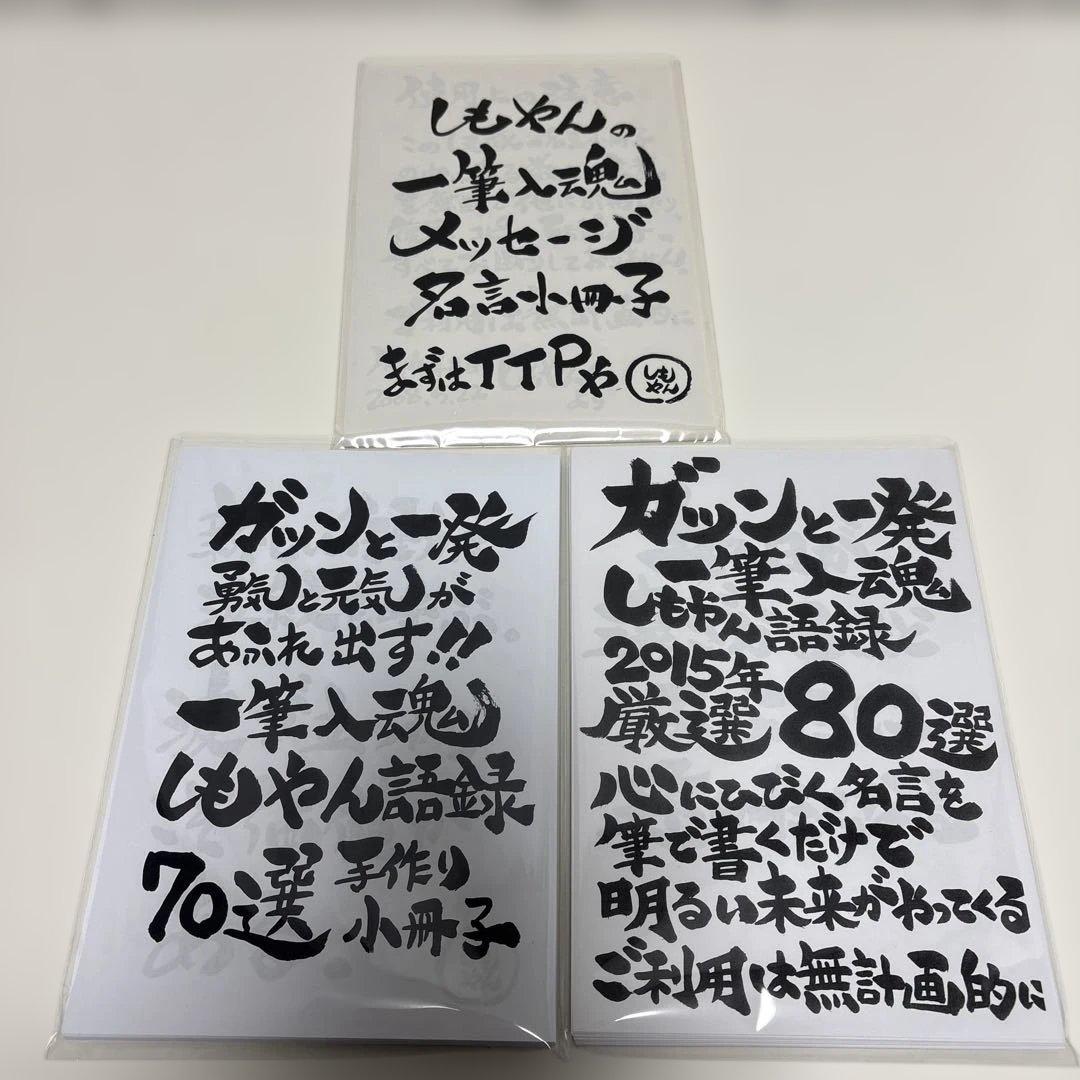 しもやんの
一筆入魂
メッセージ
名言小冊子
まずはTTPや
しもやん
ガツンと一発
勇気と元気が
あふれ出す!!
一筆入魂
しもやん語録
70選 手作り
小冊子
ガツンと一発
一筆入魂
しもやん語録
2015年
厳選80選
心にひびく名言を
筆で書くだけで
明るい未来がやってくる
ご利用は無計画的に